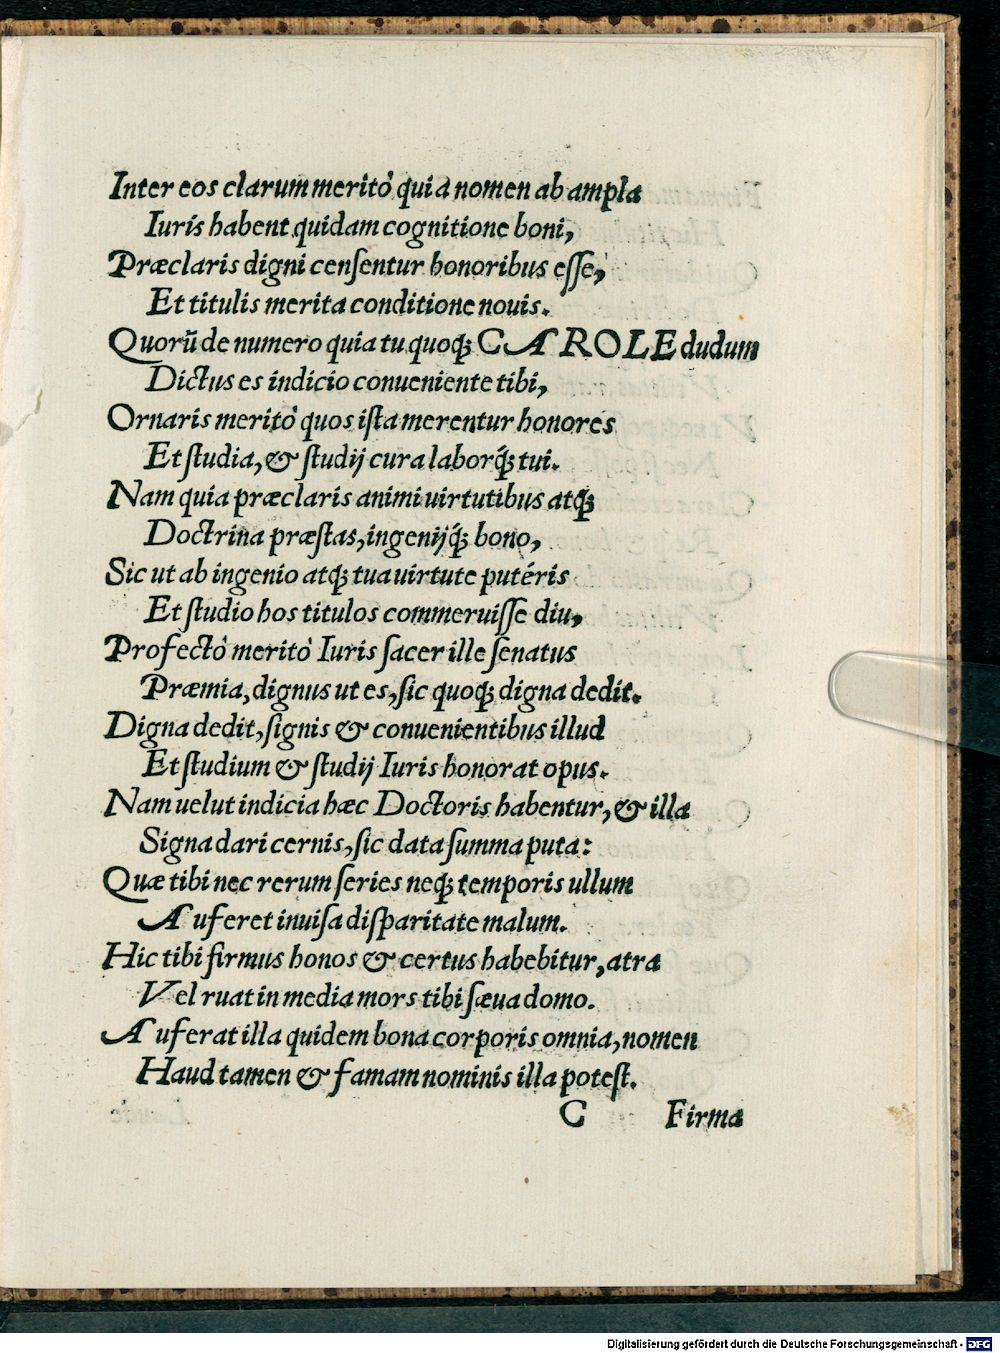 Inter eos clarum meritò quia nomen ab ampla
Iuris habent quidam cognitione boni,
Præclaris digni censentur honoribus eſſe,
Et titulis merita conditione nouis.
Quorũ de numero quia tu quoq; CAROLE dudum
Dictus es indicio conueniente tibi,
Ornaris meritò quos iſta merentur honores
Et ſtudia, & ſtudij cura laborq́; tui.
Nam quia præclaris animi uirtutibus atq;
Doctrina præſtas, ingenijq́; bono,
Sic ut ab ingenio atq; tua uirtute putéris
Et ſtudio hos titulos commeruiſſe diu,
Profectò meritò Iuris ſacer ille ſenatus
Præmia, dignus ut es, ſic quoq; digna dedit.
Digna dedit, ſignis & conuenientibus illud
Et ſtudium & ſtudij Iuris honorat opus.
Nam uelut indicia hæc Doctoris habentur, & illa
Signa dari cernis, ſic data ſumma puta:
Quæ tibi nec rerum ſeries neq; temporis ullum
Auferet inuiſa diſparitate malum.
Hic tibi firmus honos & certus habebitur, atra
Vel ruat in media mors tibi ſæua domo.
Auferat illa quidem bona corporis omnia, nomen
Haud tamen & famam nominis illa poteſt.
C Firma
Digitalisierung gefördert durch die Deutsche Forschungsgemeinschaft - DFG